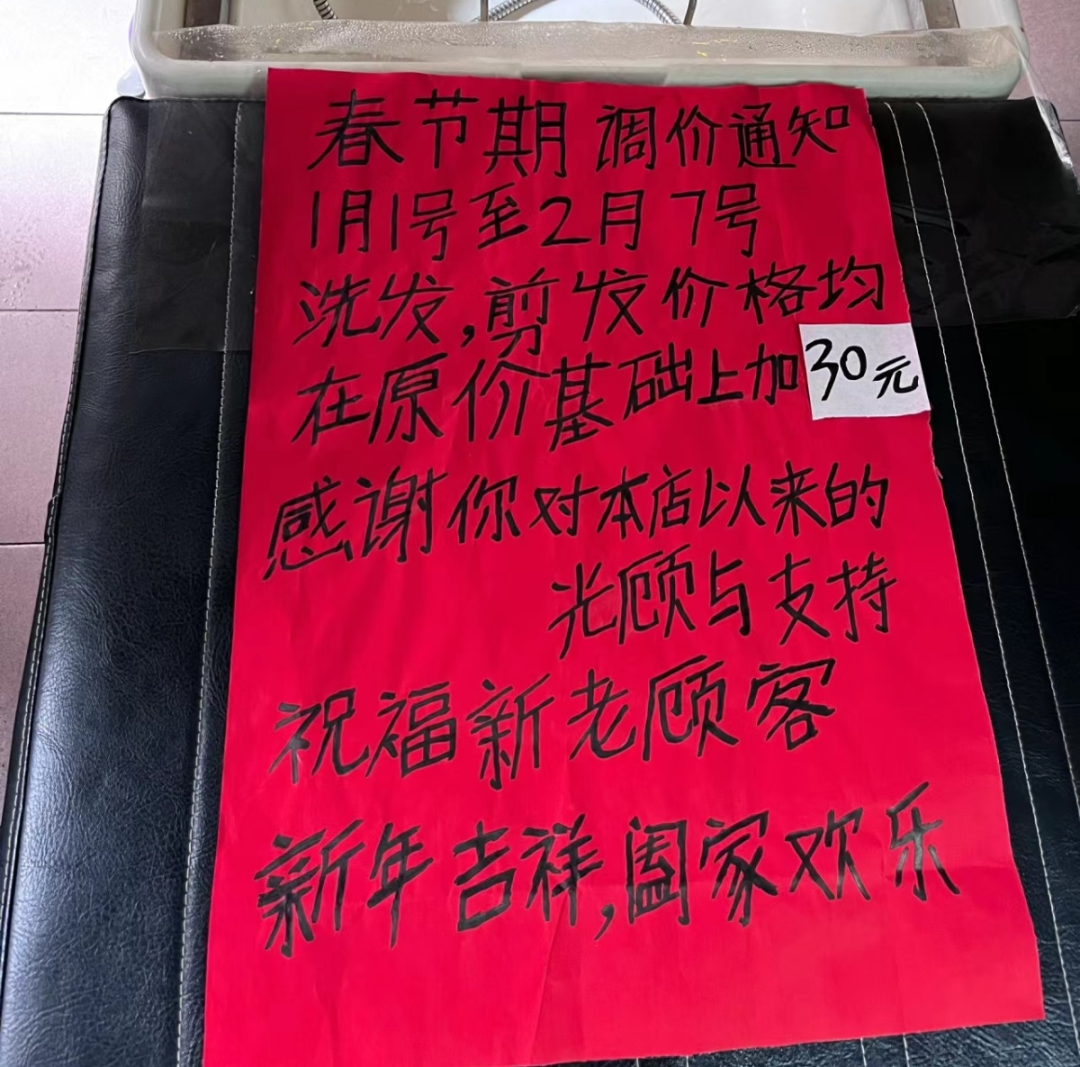 春节期调价通知
1月1号至2月7号
洗发,剪发价格均
在原价基础上加30元
感谢你对本店以来的
光顾与支持
祝福新老顾客
新年吉祥,阖家欢乐